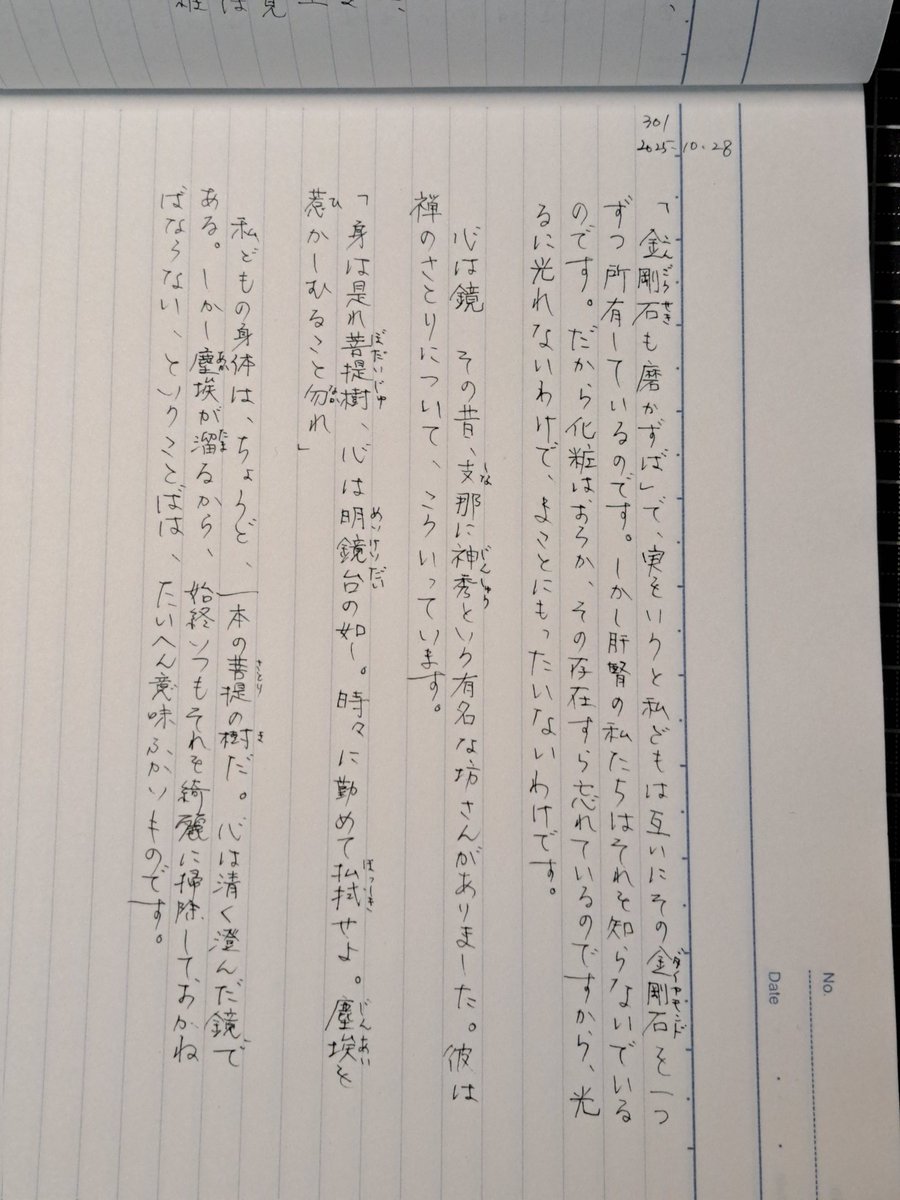 301
2025-10.28
「金剛石も磨かずば」で、実をいうと私どもは互いにその金剛石を一つ
ずつ所有しているのです。しかし肝腎の私たちはそれを知らないでいる
のです。だから化粧はおろか、その存在すら忘れているのですから、光
るに光れないわけで、まことにもったいないわけです。
心は鏡　その昔、支那に神秀という有名な坊さんがありました。彼は
禅のさとりについて、こういっています。
「身は是れ菩提樹、心は明鏡台の如し。時々に勤めて払拭せよ。塵埃を
惹かしむること勿れ」
私どもの身体は、ちょうど、一本の菩提の樹だ。心は清く澄んだ鏡で
ある。しかし塵埃が溜るから、始終いつもそれを綺麗に掃除しておかね
ばならない、ということばは、たいへん意味ふかいものです。
No.
Date